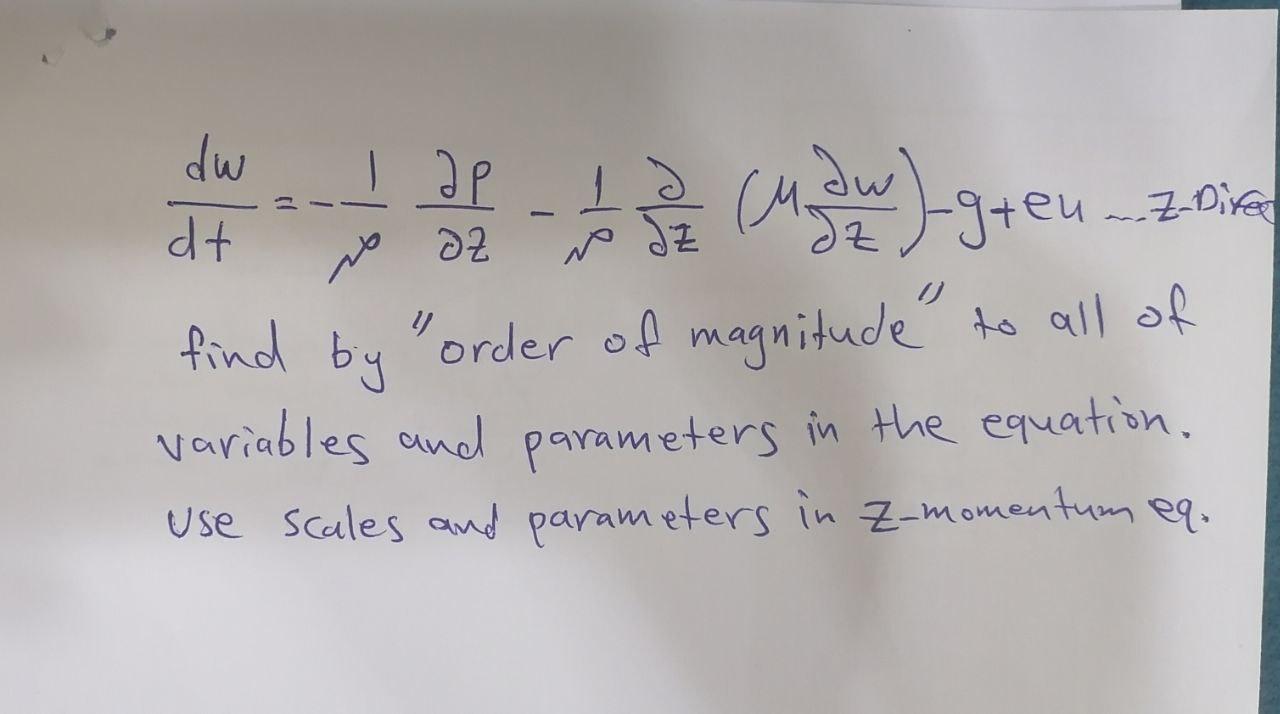 dw/dt = - 1/ρ ∂P/∂z - 1/ρ ∂/∂z (μ ∂w/∂z) - g + eu ... Z-Direc
find by "order of magnitude" to all of
variables and parameters in the equation.
Use scales and parameters in z-momentum eq.